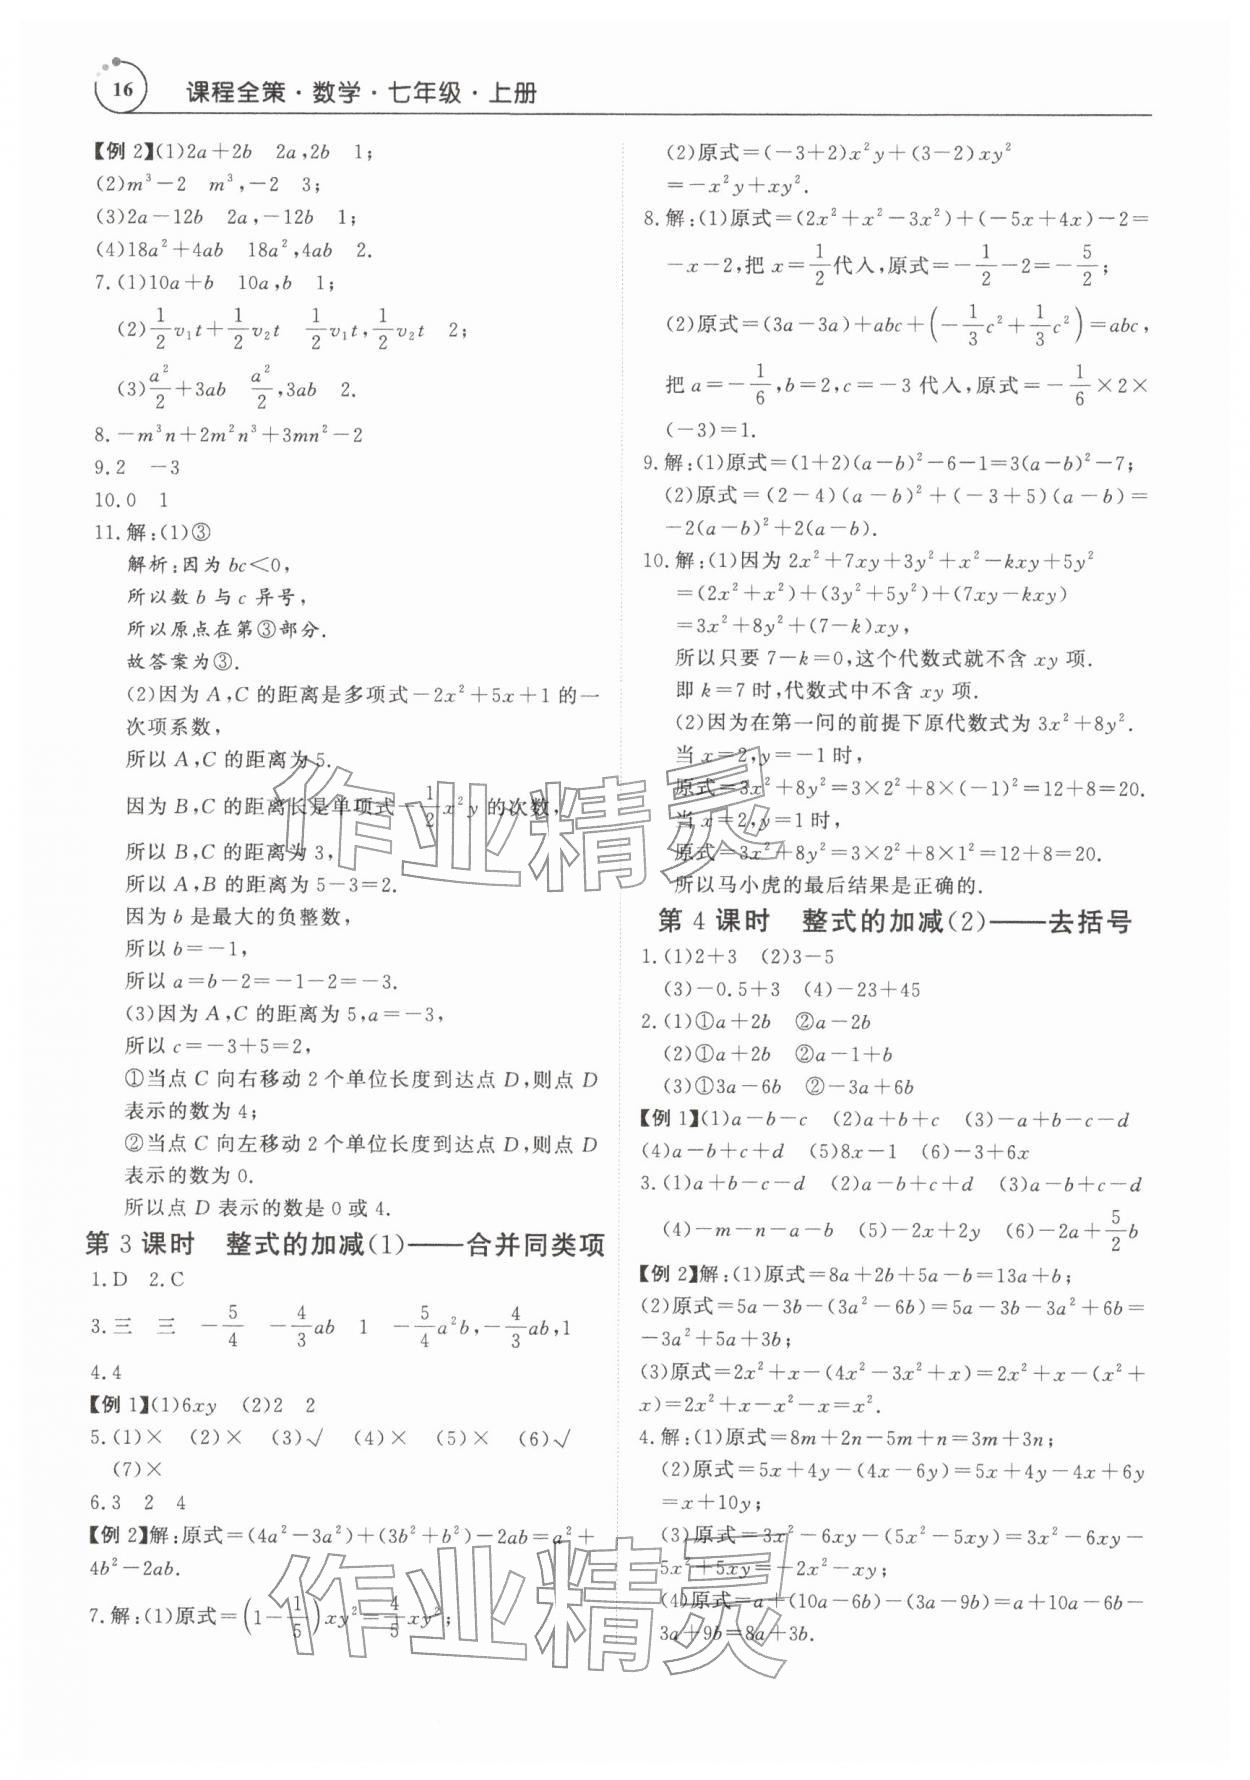 16 课程全策·数学·七年级·上册
【例 2】(1)2a+2b 2a,2b 1;
(2)m³-2 m³,-2 3;
(3)2a-12b 2a,-12b 1;
(4)18a²+4ab 18a²,4ab 2.
7.(1)10a+b 10a,b 1;
(2)1/2 v₁t+1/2 v₂t 1/2 v₁t,1/2 v₂t 2;
(3)a²/2+3ab a²/2,3ab 2.
8.-m³n+2m²n³+3mn²-2
9.2 -3
10.0 1
11.解:(1)③
解析:因为 bc<0,
所以数 b 与 c 异号,
所以原点在第③部分.
故答案为③.
(2)因为 A,C 的距离是多项式-2x²+5x+1 的一
次项系数,
所以 A,C 的距离为 5.
因为 B,C 的距离长是单项式-1/2 x²y 的次数,
所以 B,C 的距离为 3,
所以 A,B 的距离为 5-3=2.
因为 b 是最大的负整数,
所以 b=-1,
所以 a=b-2=-1-2=-3.
(3)因为 A,C 的距离为 5,a=-3,
所以 c=-3+5=2,
①当点 C 向右移动 2 个单位长度到达点 D,则点 D
表示的数为 4;
②当点 C 向左移动 2 个单位长度到达点 D,则点 D
表示的数为 0.
所以点 D 表示的数是 0 或 4.
第 3 课时 整式的加减(1)——合并同类项
1.D 2.C
3.三 三 -5/4 -4/3 ab 1 -5/4 a²b,-4/3 ab,1
4.4
【例 1】(1)6xy (2)2 2
5.(1)× (2)× (3)√ (4)× (5)× (6)√
(7)×
6.3 2 4
【例 2】解:原式=(4a²-3a²)+(3b²+b²)-2ab=a²+
4b²-2ab.
7.解:(1)原式=(1-1/5)xy²=4/5 xy²;
(2)原式=(-3+2)x²y+(3-2)xy²
=-x²y+xy².
8.解:(1)原式=(2x²+x²-3x²)+(-5x+4x)-2=
-x-2,把 x=1/2代入,原式=-1/2-2=-5/2;
(2)原式=(3a-3a)+abc+(-1/3 c²+1/3 c²)=abc,
把 a=-1/6,b=2,c=-3 代入,原式=-1/6×2×
(-3)=1.
9.解:(1)原式=(1+2)(a-b)²-6-1=3(a-b)²-7;
(2)原式=(2-4)(a-b)²+(-3+5)(a-b)=
-2(a-b)²+2(a-b).
10.解:(1)因为 2x²+7xy+3y²+x²-kxy+5y²
=(2x²+x²)+(3y²+5y²)+(7xy-kxy)
=3x²+8y²+(7-k)xy,
所以只要 7-k=0,这个代数式就不含 xy 项.
即 k=7 时,代数式中不含 xy 项.
(2)因为在第一问的前提下原代数式为 3x²+8y².
当 x=2,y=-1 时,
原式=3x²+8y²=3×2²+8×(-1)²=12+8=20.
当 x=2,y=1 时,
原式=3x²+8y²=3×2²+8×1²=12+8=20.
所以马小虎的最后结果是正确的.
第 4 课时 整式的加减(2)——去括号
1.(1)2+3 (2)3-5
(3)-0.5+3 (4)-23+45
2.(1)①a+2b ②a-2b
(2)①a+2b ②a-1+b
(3)①3a-6b ②-3a+6b
【例 1】(1)a-b-c (2)a+b+c (3)-a+b-c-d
(4)a-b+c+d (5)8x-1 (6)-3+6x
3.(1)a+b-c-d (2)a-b+c+d (3)a-b+c-d
(4)-m-n-a-b (5)-2x+2y (6)-2a+5/2 b
【例 2】解:(1)原式=8a+2b+5a-b=13a+b;
(2)原式=5a-3b-(3a²-6b)=5a-3b-3a²+6b=
-3a²+5a+3b;
(3)原式=2x²+x-(4x²-3x²+x)=2x²+x-(x²+
x)=2x²+x-x²-x=x².
4.解:(1)原式=8m+2n-5m+n=3m+3n;
(2)原式=5x+4y-(4x-6y)=5x+4y-4x+6y
=x+10y;
(3)原式=3x²-6xy-(5x²-5xy)=3x²-6xy-
5x²+5xy=-2x²-xy;
(4)原式=a+(10a-6b)-(3a-9b)=a+10a-6b-
3a+9b=8a+3b.
作业精灵
作业精灵